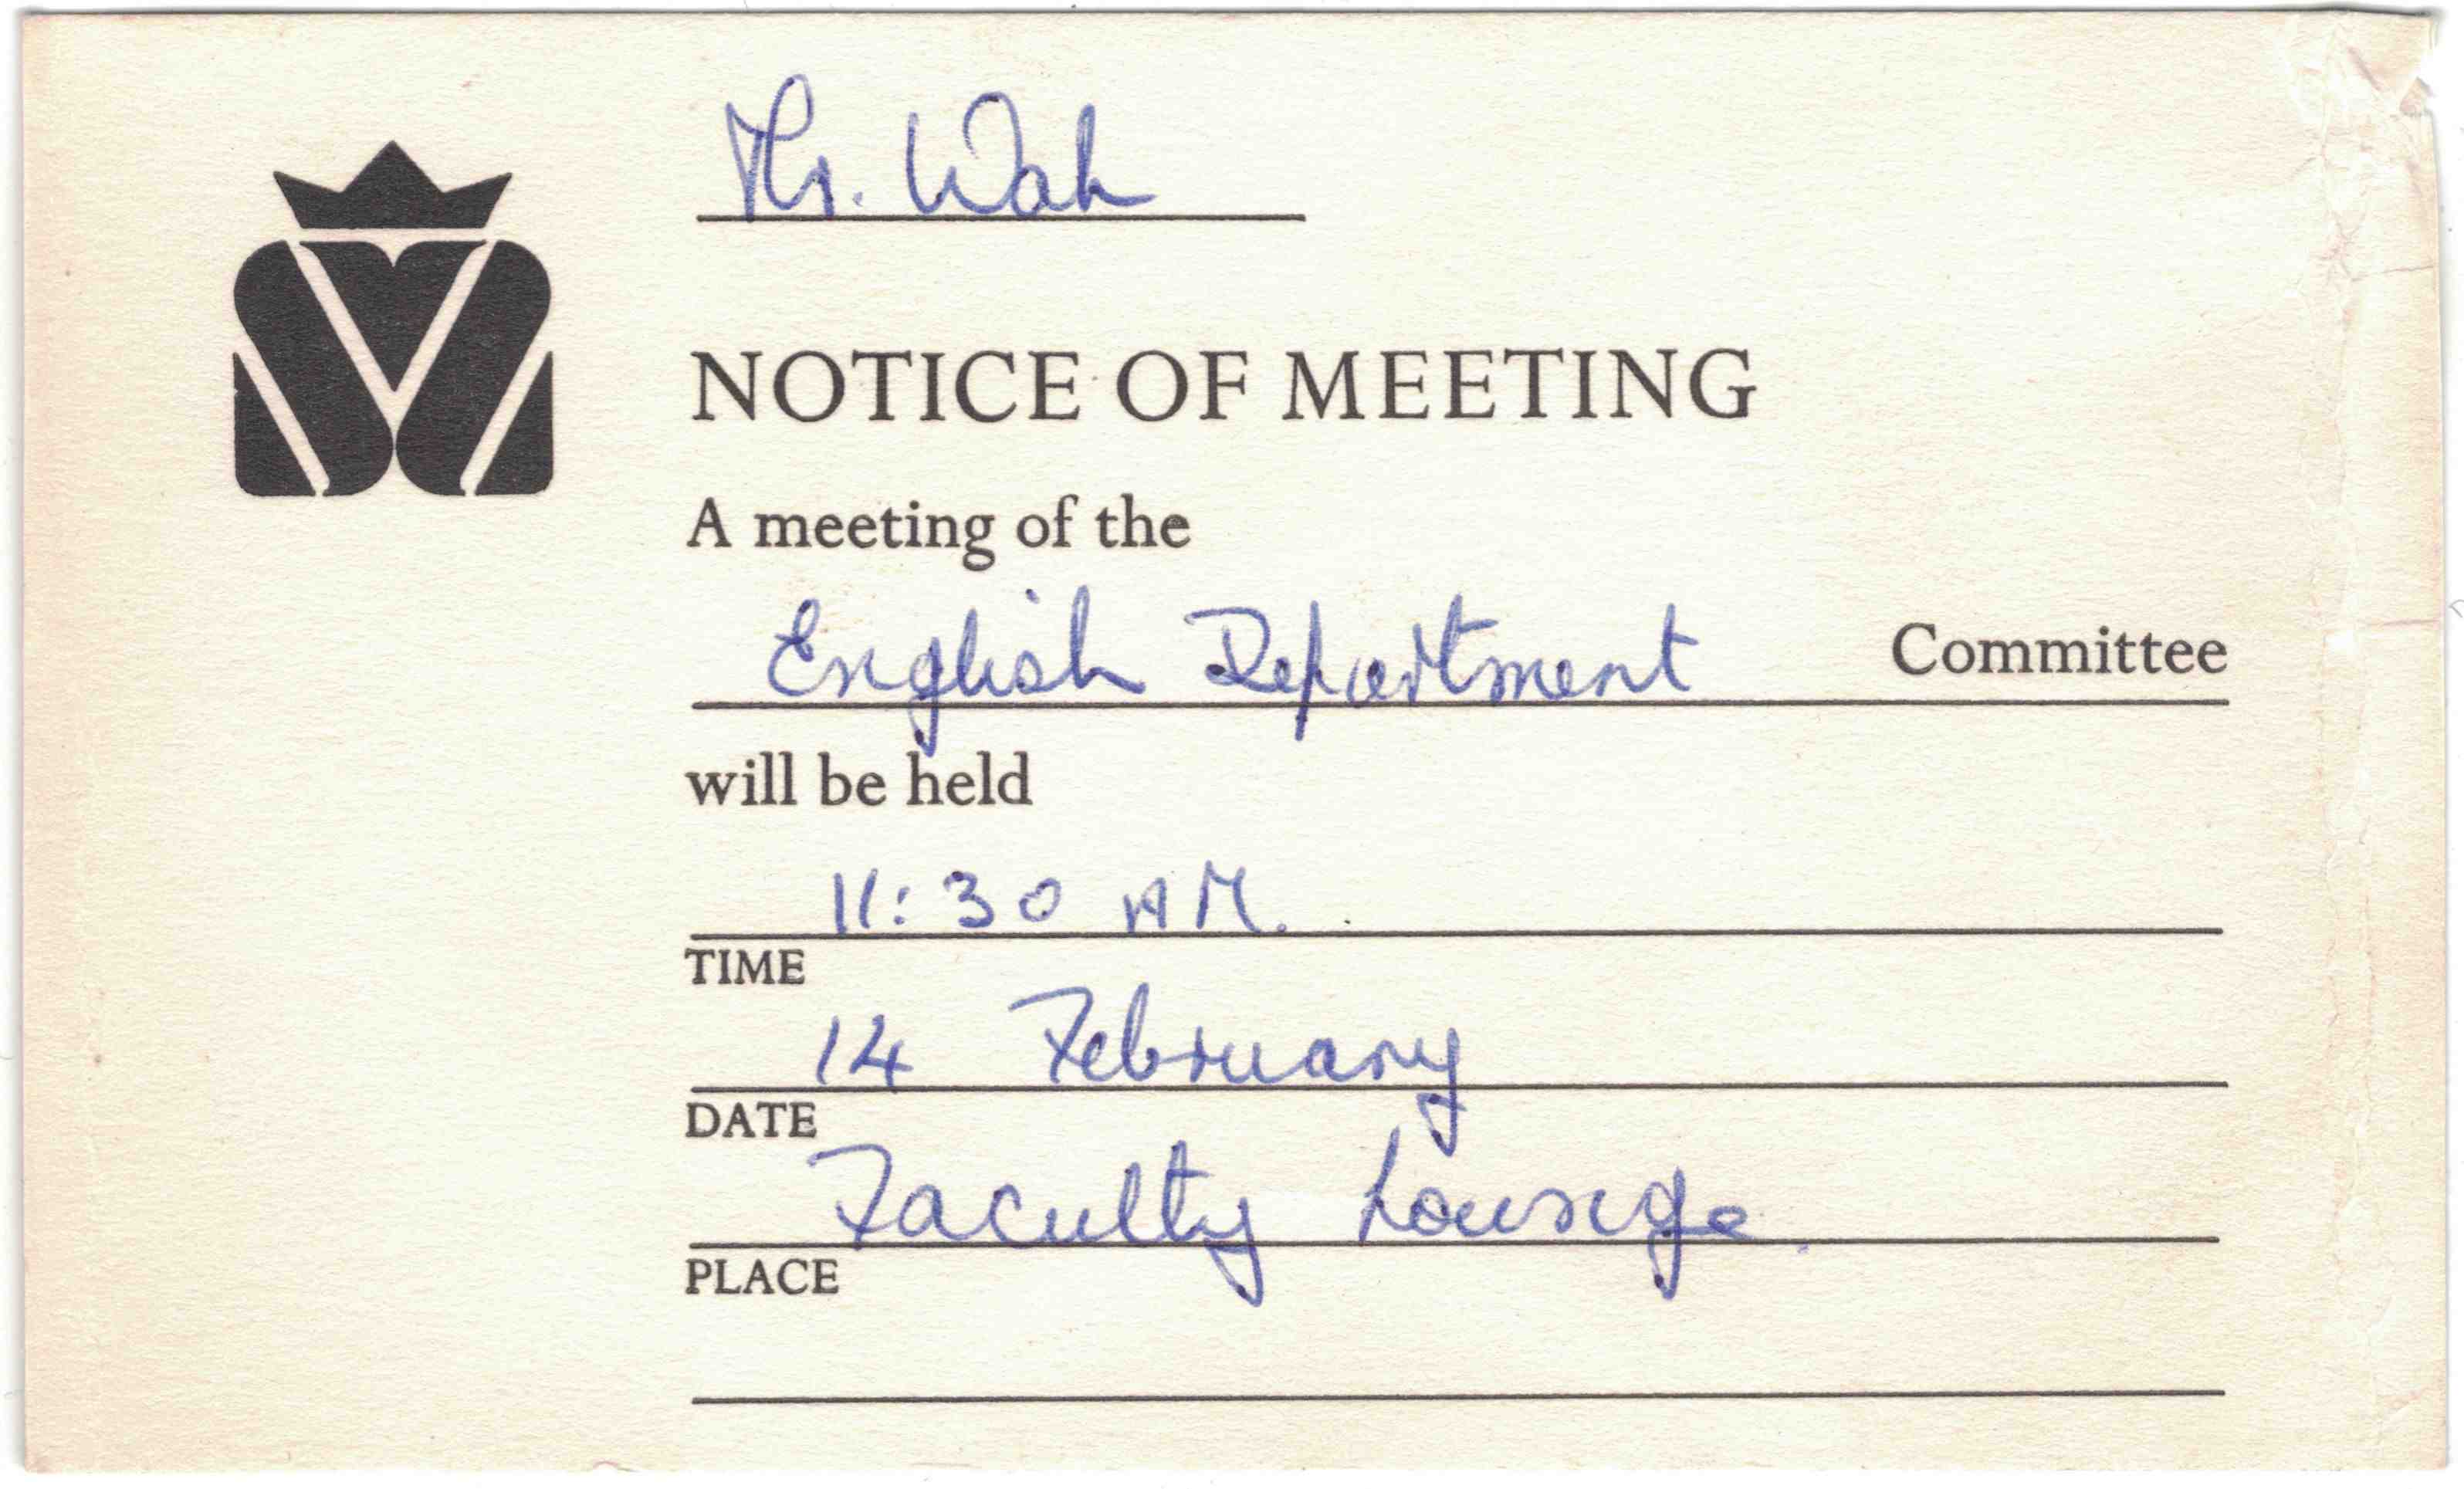 Mr. Wah
NOTICE OF MEETING
A meeting of the
English Department Committee
will be held
11:30 AM.
TIME
14 February
DATE
Faculty Lounge.
PLACE